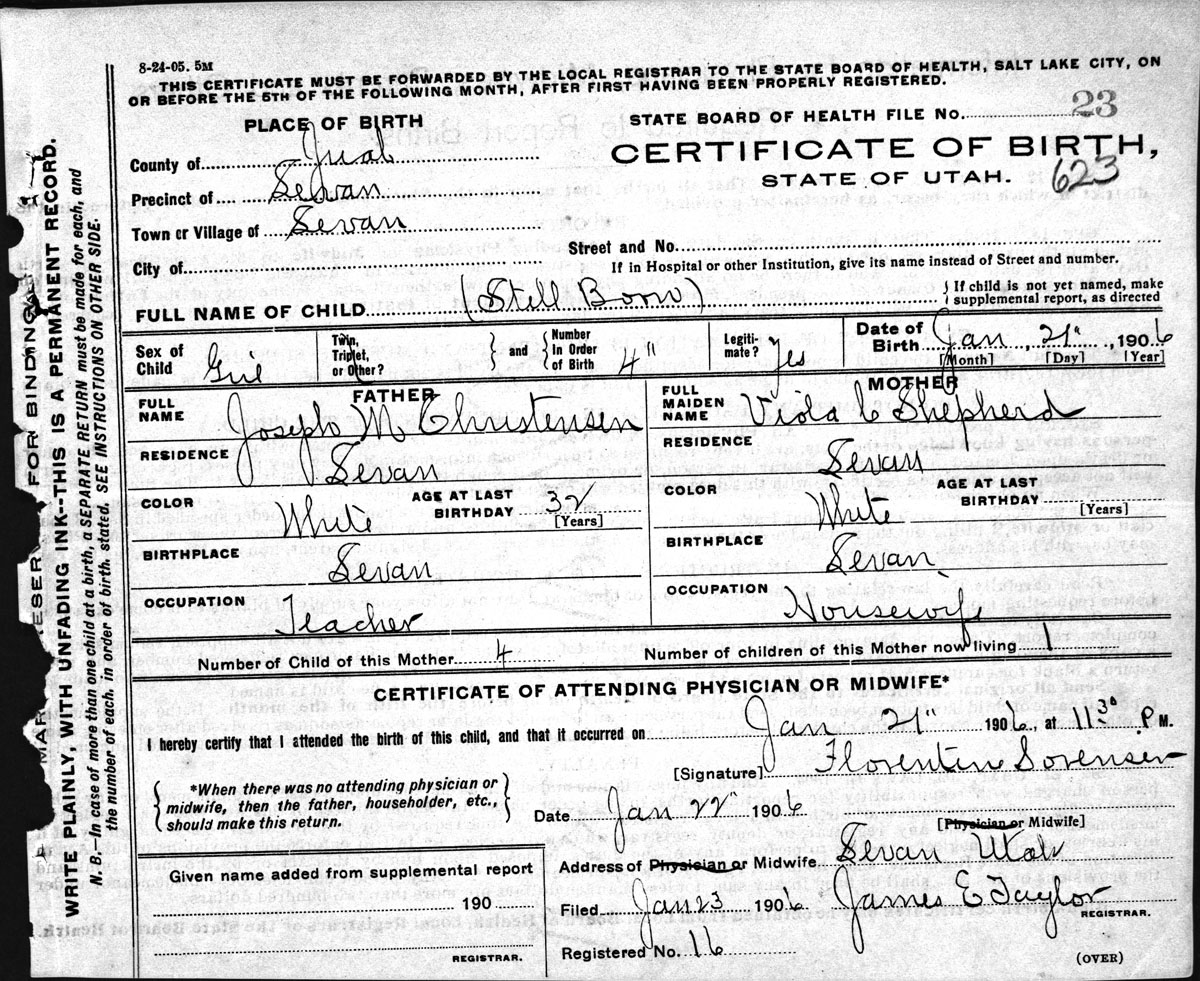 8-24-05. 5M
THIS CERTIFICATE MUST BE FORWARDED BY THE LOCAL REGISTRAR TO THE STATE BOARD OF HEALTH, SALT LAKE CITY, ON
OR BEFORE THE 5TH OF THE FOLLOWING MONTH, AFTER FIRST HAVING BEEN PROPERLY REGISTERED.
PLACE OF BIRTH
STATE BOARD OF HEALTH FILE No. 23
County of Juab
CERTIFICATE OF BIRTH,
STATE OF UTAH. 623
Precinct of Levan
Town or Village of Levan
Street and No.
City of
If in Hospital or other Institution, give its name instead of Street and number.
FULL NAME OF CHILD (Still Born) { If child is not yet named, make supplemental report, as directed
Sex of Child Girl Twin, Triplet, or Other? } and { Number In Order of Birth 4" Legiti- mate? Yes Date of Birth Jan 21", 1906
[Month] [Day] [Year]
FATHER
MOTHER
FULL NAME Joseph M Christensen
FULL MAIDEN NAME Viola C Shepherd
RESIDENCE Levan
RESIDENCE Levan
COLOR White AGE AT LAST BIRTHDAY 32 [Years]
COLOR White AGE AT LAST BIRTHDAY [Years]
BIRTHPLACE Levan
BIRTHPLACE Levan
OCCUPATION Teacher
OCCUPATION Housewife
Number of Child of this Mother 4 Number of children of this Mother now living 1
CERTIFICATE OF ATTENDING PHYSICIAN OR MIDWIFE*
I hereby certify that I attended the birth of this child, and that it occurred on Jan 21" 1906, at 11 30 P M.
[Signature] Florentine Sorensen
{ *When there was no attending physician or midwife, then the father, householder, etc., should make this return. }
Date Jan 22" 1906
[Physician or Midwife]
Address of Physician or Midwife Levan Utah
Given name added from supplemental report
190
REGISTRAR.
Filed Jan 23 1906 James E Taylor
REGISTRAR.
Registered No. 16
(OVER)
WRITE PLAINLY, WITH UNFADING INK--THIS IS A PERMANENT RECORD.
N. B.—In case of more than one child at a birth, a SEPARATE RETURN must be made for each, and
the number of each, in order of birth, stated. SEE INSTRUCTIONS ON OTHER SIDE.
FOR BINDING